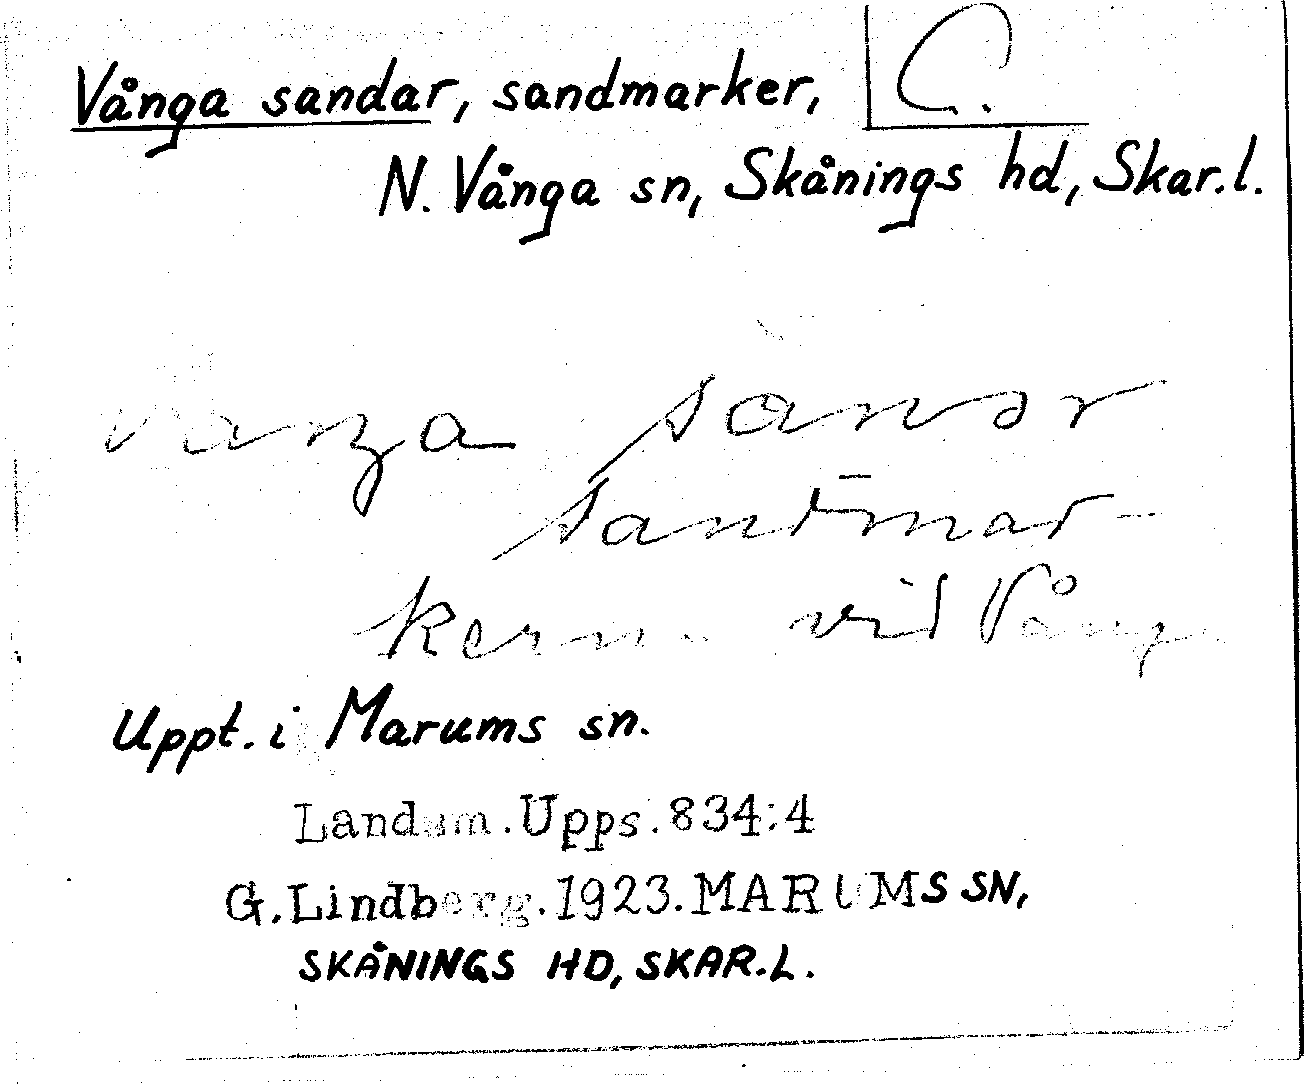 Vånga sandar, sandmarker, C.
N. Vånga sn, Skånings hd, Skar.l.
sandmar-
kerna vid Vånga
Uppt. i Marums sn.
Landsm.Upps.834:4
G.Lindberg.1923.MARUMS SN,
SKÅNINGS HD, SKAR.L.